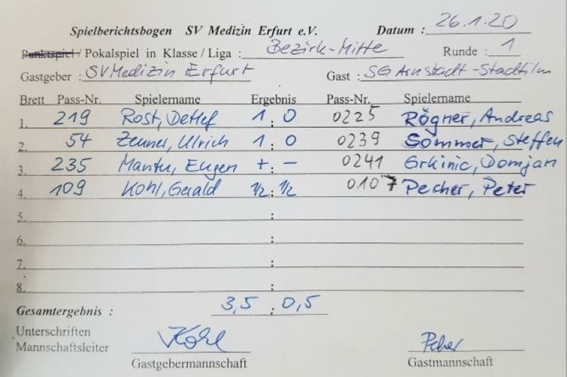 Spielberichtsbogen SV Medizin Erfurt e.V. Datum : 26.1.20
Punktspiel / Pokalspiel in Klasse / Liga : Bezirk-Mitte Runde : 1
Gastgeber : SV Medizin Erfurt Gast : SG Arnstadt-Stadtilm
Brett Pass-Nr. Spielername Ergebnis Pass-Nr. Spielername
1. 219 Rost, Detlef 1 : 0 0225 Rögner, Andreas
2. 54 Zenner, Ulrich 1 : 0 0239 Sommer, Steffen
3. 235 Mantu, Eugen + : - 0241 Grkinic, Domjan
4. 109 Kohl, Gerald ½ : ½ 0107 Pecher, Peter
5. :
6. :
7. :
8. :
Gesamtergebnis : 3,5 : 0,5
Unterschriften
Mannschaftsleiter Kohl Pecher
Gastgebermannschaft Gastmannschaft